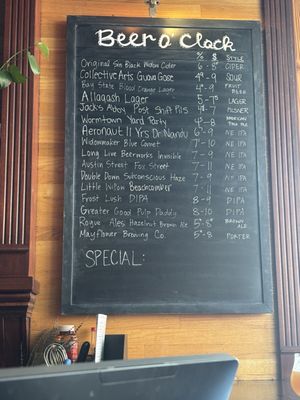 Beer o' Clock
% $ STYLE
Original Sin Black Widow Cider 6 - 8 CIDER
Collective Arts Guava Gose 4⁹ - 9 SOUR
Bay State Blood Orange Lager 4 - 9 FRUIT BEER
Allagash Lager 5 - 7 LAGER
Jack's Abby Post Shift Pils 4⁷ - 7 PILSNER
Wormtown Yard Party 4⁵ - 8
Aeronaut II Yrs Dr. Nandu 6⁵ - 9 NE IPA
Widowmaker Blue Comet 7¹ - 10 NE IPA
Long Live Beerworks Invisible 7 - 9 NE IPA
Austin Street Fox Street 7 - 11 NE IPA
Double Down Subconscious Haze 7 - 9 NE IPA
Little Willow Beachcomber 7 - 11 NE IPA
Frost Lush DIPA 8 - 9 DIPA
Greater Good Pulp Daddy 8 - 10 DIPA
Rogue Ales Hazelnut Brown Ale 5⁶ - 8 BROWN ALE
Mayflower Brewing Co. 5² - 8 PORTER
SPECIAL: